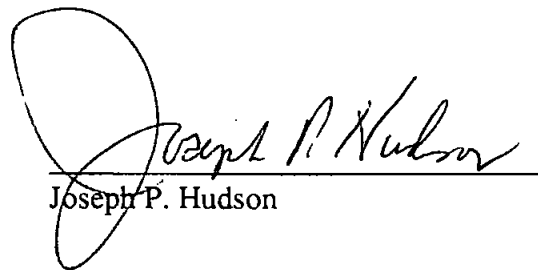 Joseph P. Hudson
Joseph P. Hudson